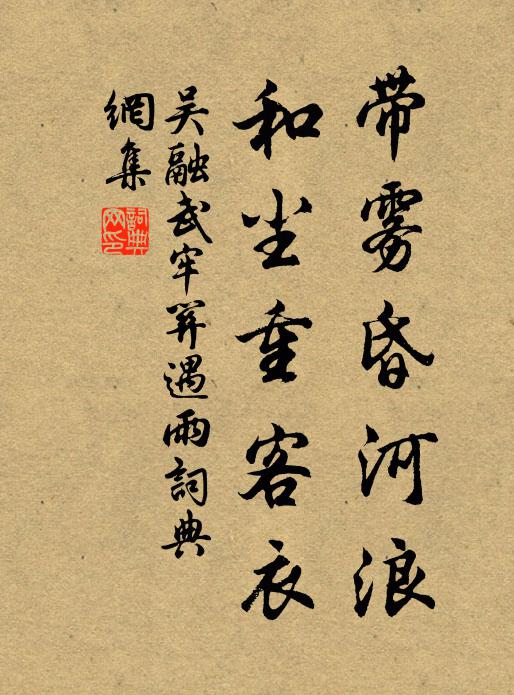 带雾昏河浪
和尘重客衣
吴融武牢关遇雨詞典
網集
詞典网印